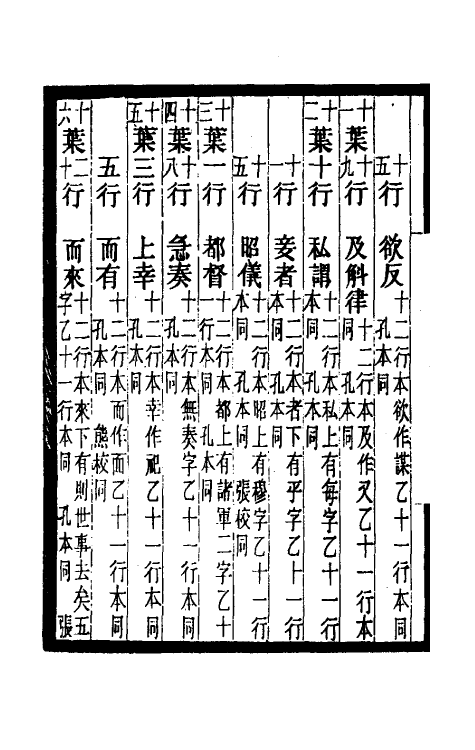 十五行　欲反　十二行本欲作謀乙十一行本同孔本同
十一葉十九行　及斛律　十二行本及作又乙十一行本同　孔本同
十二葉十行　私謂　十二行本私上有每字乙十一行本同　孔本同
十一行　妾者　十二行本者下有乎字乙十一行本同　孔本同
十五行　昭儀　十二行本昭上有穆字乙十一行本同　孔本同　張校同
十三葉一行　都督　十二行本都上有諸軍二字乙十一行本同　孔本同
十四葉十八行　急奏　十二行本無奏字乙十一行本同孔本同
十五葉三行　上幸　十二行本幸作祀乙十一行本同孔本同
五行　而有　十二行本而作面乙十一行本同孔本同　熊校同
十六葉十二行　而來　十二行本來下有則世事去矣五字乙十一行本同　孔本同　張